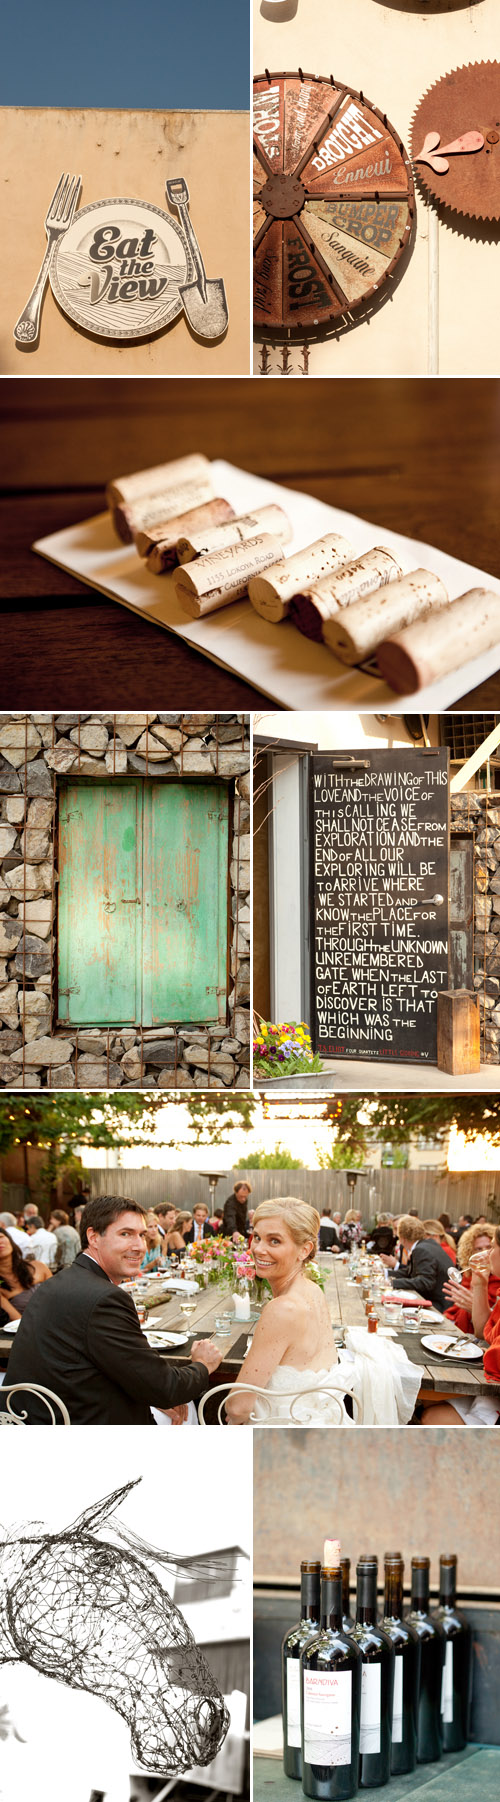 Eat
the
View
DROUGHT
Ennui
BUMPER
CROP
Sanguine
FROST
VINEYARDS
1155 LOKOYA ROAD
CALIFORNIA
WITH THE DRAWING OF THIS
LOVE AND THE VOICE OF
THIS CALLING WE
SHALL NOT CEASE FROM
EXPLORATION AND THE
END OF ALL OUR
EXPLORING WILL BE
TO ARRIVE WHERE
WE STARTED AND
KNOW THE PLACE FOR
THE FIRST TIME.
THROUGH THE UNKNOWN
UNREMEMBERED
GATE WHEN THE LAST
OF EARTH LEFT TO
DISCOVER IS THAT
WHICH WAS THE
BEGINNING
FOUR QUARTETS LITTLE GIDDING V
BARNDIVA